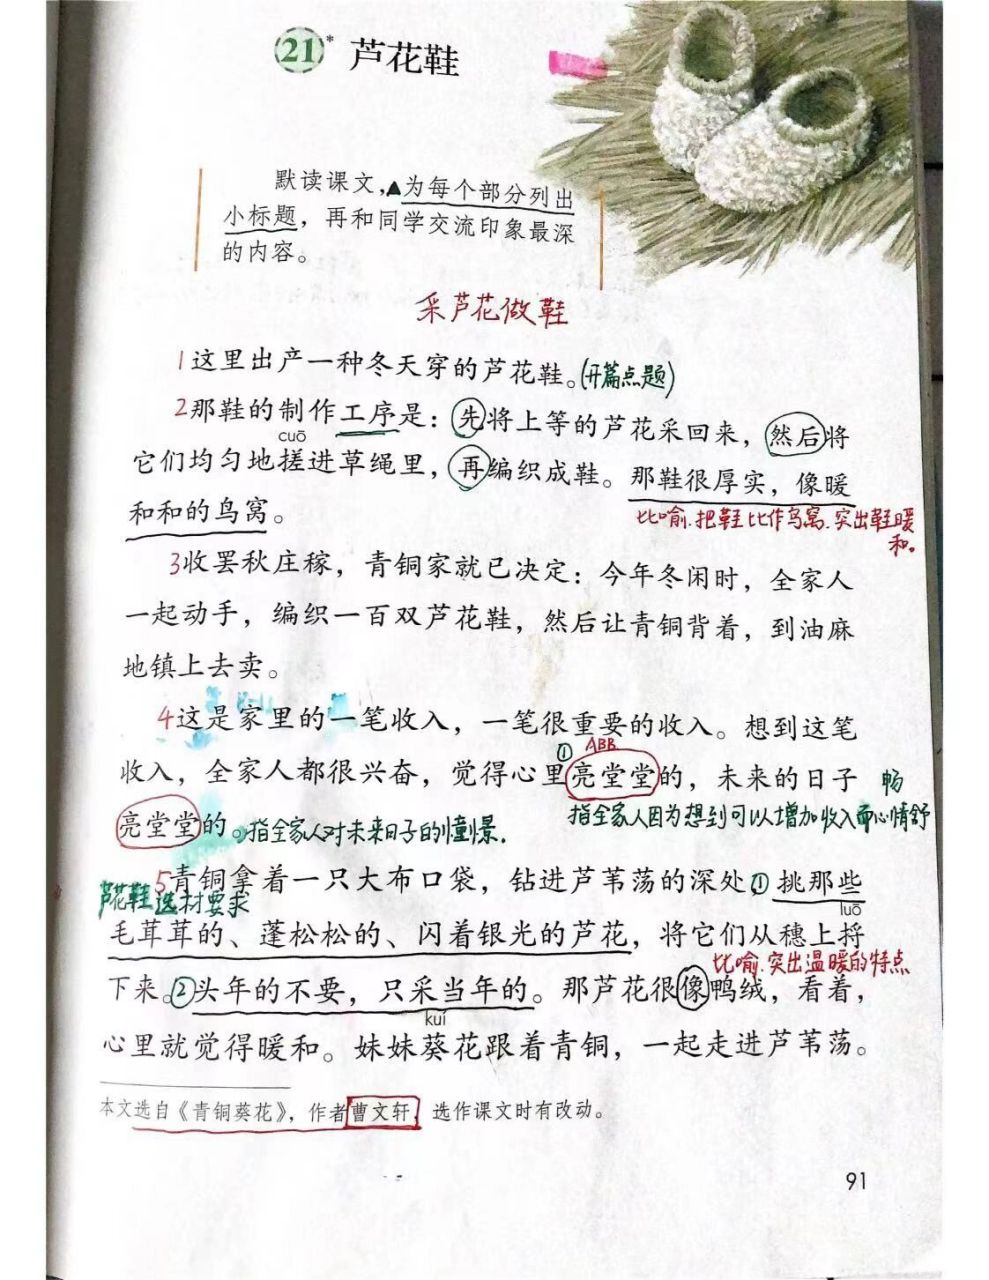 21* 芦花鞋
默读课文，▲为每个部分列出
小标题，再和同学交流印象最深
的内容。
采芦花做鞋
1这里出产一种冬天穿的芦花鞋。(开篇点题)
2那鞋的制作工序是：先将上等的芦花采回来，然后将
cuō
它们均匀地搓进草绳里，再编织成鞋。那鞋很厚实，像暖
和和的鸟窝。
比喻.把鞋比作鸟窝.突出鞋暖
和。
3收罢秋庄稼，青铜家就已决定：今年冬闲时，全家人
一起动手，编织一百双芦花鞋，然后让青铜背着，到油麻
地镇上去卖。
4这是家里的一笔收入，一笔很重要的收入。想到这笔
① ABB
收入，全家人都很兴奋，觉得心里亮堂堂的，未来的日子
畅
指全家人因为想到可以增加收入而心情舒
亮堂堂的。②指全家人对未来日子的憧景.
5青铜拿着一只大布口袋，钻进芦苇荡的深处①挑那些
芦花鞋选材要求
luō
毛茸茸的、蓬松松的、闪着银光的芦花，将它们从穗上捋
比喻.突出温暖的特点
下来。②头年的不要，只采当年的。那芦花很像鸭绒，看着，
kuí
心里就觉得暖和。妹妹葵花跟着青铜，一起走进芦苇荡。
本文选自《青铜葵花》，作者曹文轩，选作课文时有改动。
91